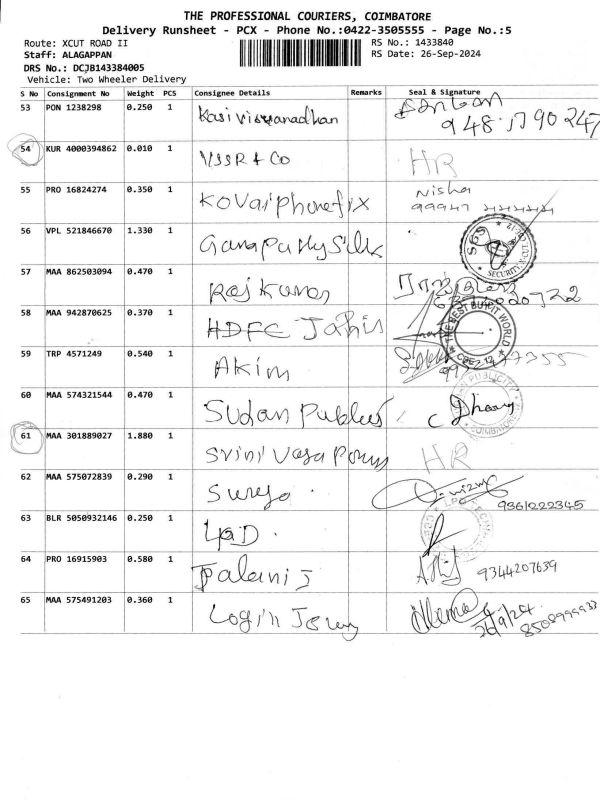 THE PROFESSIONAL COURIERS, COIMBATORE
Delivery Runsheet - PCX - Phone No.:0422-3505555 - Page No.:5
Route: XCUT ROAD II
RS No.: 1433840
Staff: ALAGAPPAN
RS Date: 26-Sep-2024
DRS No.: DCJB143384005
Vehicle: Two Wheeler Delivery
S No Consignment No Weight PCS Consignee Details Remarks Seal & Signature
53 PON 1238298 0.250 1 Kasi viswanadhan
54 KUR 4000394862 0.010 1 VSSR & Co HR
55 PRO 16824274 0.350 1 Kovaiphonefix Nisha
56 VPL 521846670 1.330 1 Ganapathy Silk SGS SECURITY
57 MAA 862503094 0.470 1 Raj Kumar
58 MAA 942870625 0.370 1 HDFC THE BEST WORLD
59 TRP 4571249 0.540 1 Akim
60 MAA 574321544 0.470 1 Sudan PUBLICITY
61 MAA 301889027 1.880 1 Srinivasa HR
62 MAA 575072839 0.290 1 9361222345
63 BLR 5050932146 0.250 1
64 PRO 16915903 0.580 1 Palani J 9344207639
65 MAA 575491203 0.360 1 Login 26/9/24 8508999933